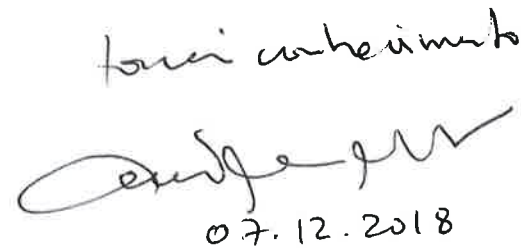 tomei conhecimento
07.12.2018